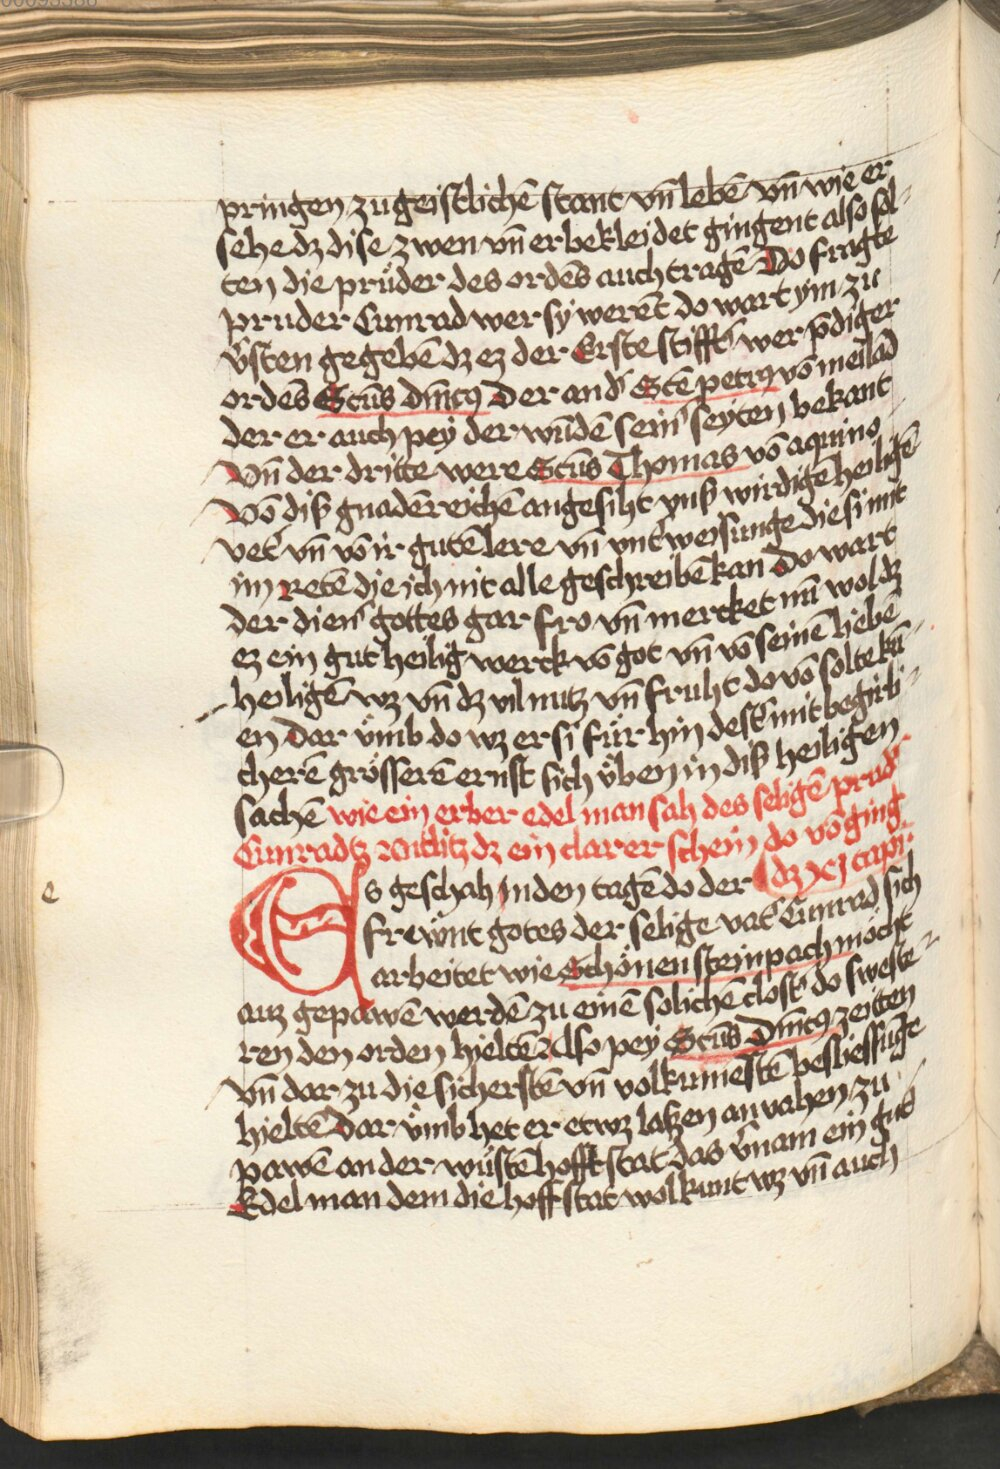 pringen zu geistlichē stant vn̄ lebē vn̄ wie er
sehe dz dise zwen vn̄ er bekleidet gingent also söl-
ten die prüder des ordēs auch tragē Do fragte
pruder Cunrad wer sy werēt do wart ym zu
v̄sten gegebē dz ez der Erste stifft͛ wer p̄diger
ordēs Sctūs Dm̄icꝯ Der and͛ Scte petrꝯ vō meilād
der er auch pey der wūdē sein͛ seyten bekant
Vn̄ der dritte were Sctūs Thomas vō aquino
Vō diß gnadēreichē angesiht vnß wirdigē heiligē
vet͛ vn̄ vō ir gutē lere vn̄ vnt͛weisunge die si mit
im Retē die ich nit alle geschreibē kan Do wart
der dien͛ gottes gar fro vn̄ mercket nū wol dz
ez ein gut heilig werck vō got vn̄ vō seinē liebē
heiligē wz vn̄ dz vil nutz vn̄ fruht do vō solte kū-
en Dar vmb do wz er si für hin dest͛ mit begirli-
cherē grösserē ernst sich vben in diß heiligen
sachē wie ein erber edel man sah des seligē prud͛
Cunradtz Antlitz dz ein clarer schein do vō ging
Es geschah in den tagē do der dz xj capi:
frewnt gotes der selige vat͛ Cunrad sich
arbeitet wie Schönensteinpach möcht
auz gepawē werdē zu einē solichē clost͛ do sweste-
ren den orden hieltē Also pey Sctūs Dm̄icꝯ zeitten
Vn̄ dar zu die sicherstē vn̄ volkumestē besliessūge
hieltē Dar vmb het er etwz laßen an vahen zu
pawē an der wüstē hoffstat das v̄nam ein gut͛
Edelman dem die hoffstat wol kunt wz vn̄ auch
e